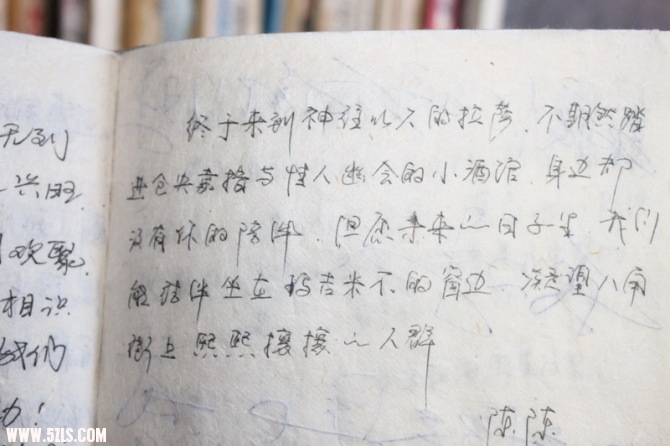 天到
兴旺.
欢聚.
相识
我们
办!
终于来到神往以久的拉萨、不期然踏
进仓央嘉措与情人幽会的小酒馆.身边却
没有你的陪伴.但愿未来的日子里我们
能结伴坐在玛吉米不的窗边 凝望八角
街上熙熙攘攘的人群
陈陈
www.5ZLS.COM